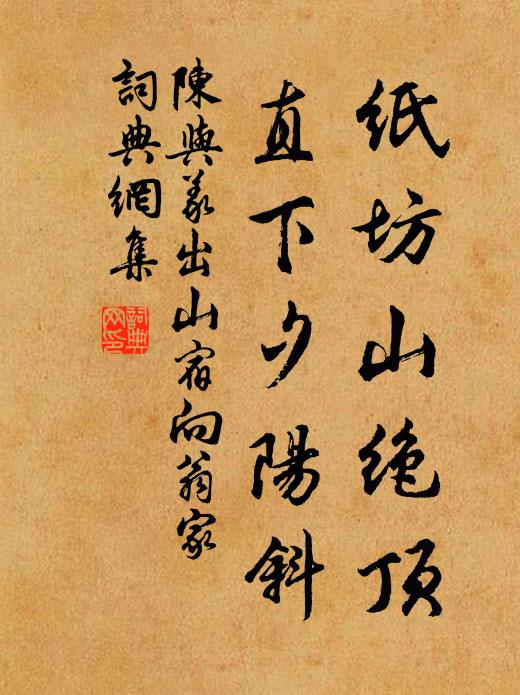 紙坊山絶頂
直下夕陽斜
陳與義出山宿向翁家
詞典網集
詞典网印